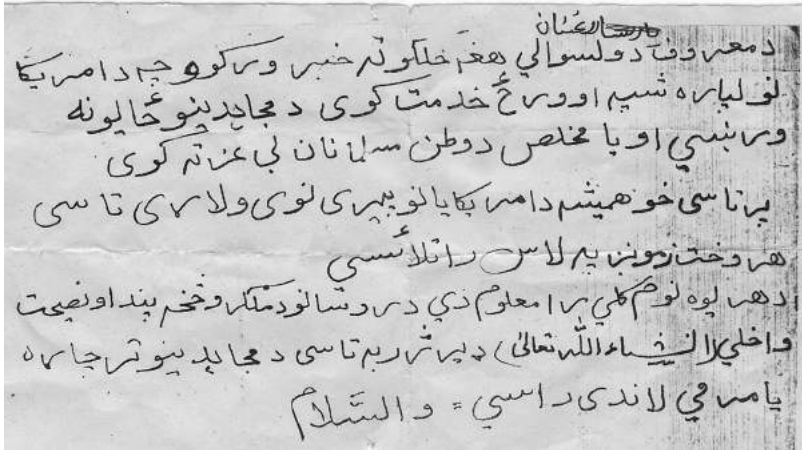 د معروف د ولسوالي هغه خلکو ته خبر ورکوو چه د امریکا
نو لپاره شپه او ورځ خدمت کوی د مجاهدینو ځایونه
ورښیي او یا مخلص د وطن مسلمانان بي عزته کوی
پر تاسی خو همیشه د امریکایانو پیری نوی ولاړی تاسی
هر وخت زمونږ په لاس راتلائسی
د هر یوه نوم کلي را معلوم دي د روسانو د ملګرو څخه پند او نصیحت
واخلي (انشاءالله تعالی) ډیر ژر به تاسی د مجاهدینو تر چاړه
یا مرمي لاندی راسي = والسّلام